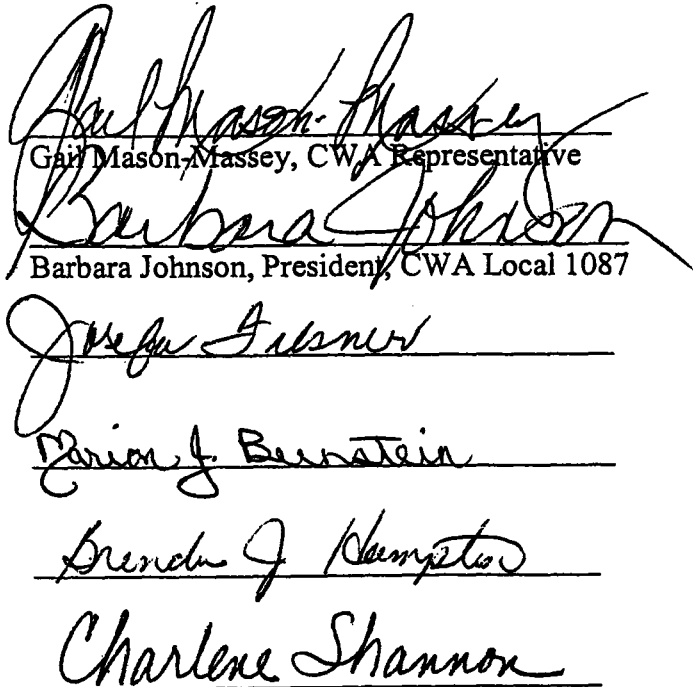 Gail Mason-Massey
Gail Mason-Massey, CWA Representative
Barbara Johnson
Barbara Johnson, President, CWA Local 1087
Marion J. Bernstein
Brenda J Hampton
Charlene Shannon